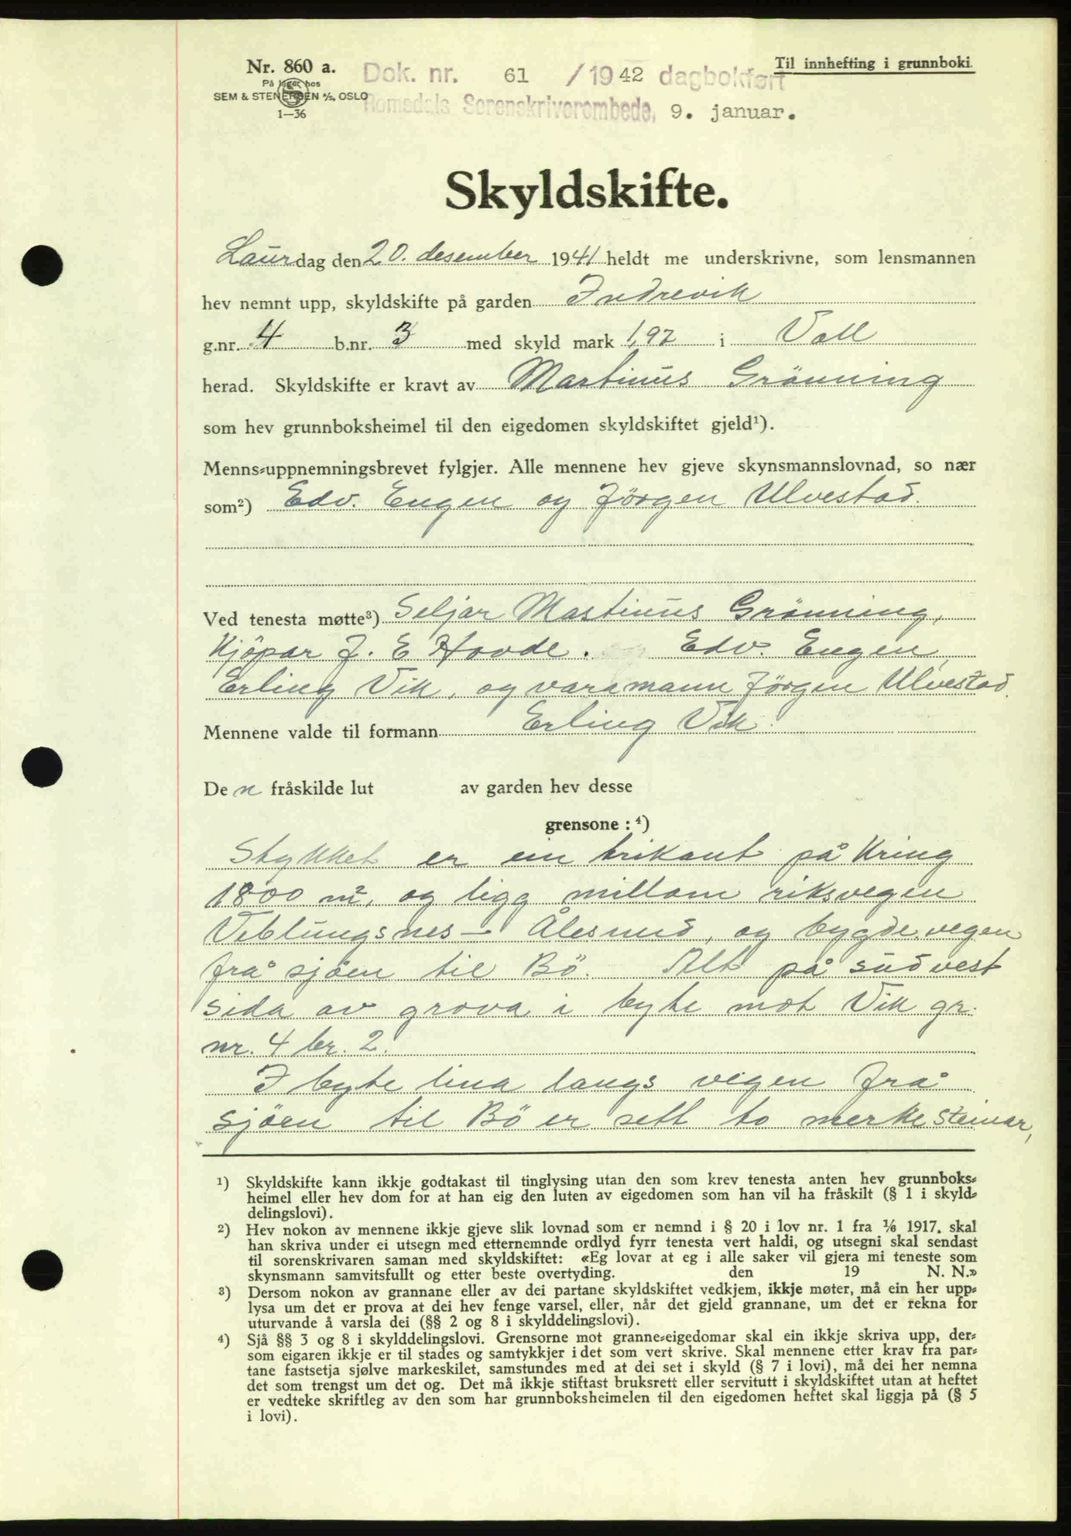 Nr. 860 a.
På lager hos
SEM & STENERSEN A/S, OSLO
1—36
Dok. nr. 61 /1942 dagbokført
Romsdals Sorenskriverembede, 9. januar.
Til innhefting i grunnboki.
Skyldskifte.
Laurdag den 20. desember 1941 heldt me underskrivne, som lensmannen
hev nemnt upp, skyldskifte på garden Indrevik
g.nr. 4 b.nr. 3 med skyld mark 1,92 i Voll
herad. Skyldskifte er kravt av Martinus Grönning
som hev grunnboksheimel til den eigedomen skyldskiftet gjeld¹).
Menns-uppnemningsbrevet fylgjer. Alle mennene hev gjeve skynsmannslovnad, so nær
som²) Edv. Engen og Jörgen Ulvestad.
Ved tenesta møtte³) Seljar Martinus Grönning,
Kjöpar J. E Hovde. Edv. Engen,
Erling Vik, og varamann Jörgen Ulvestad.
Mennene valde til formann Erling Vik.
De n fråskilde lut av garden hev desse
grensone : ⁴)
Stykket er ein trikant på kring
1800 m², og ligg millom riksvegen
Veblungsnes — Ålesund, og bygdevegen
frå sjöen til Bö. Alt på südvest
sida av grova i byte mot Vik gr.
nr. 4 br. 2.
I byte lina langs vegen frå
sjöen til Bö er sett to merke steinar,
¹) Skyldskifte kann ikkje godtakast til tinglysing utan den som krev tenesta anten hev grunnboks-
heimel eller hev dom for at han eig den luten av eigedomen som han vil ha fråskilt (§ 1 i skyld-
delingslovi).
²) Hev nokon av mennene ikkje gjeve slik lovnad som er nemnd i § 20 i lov nr. 1 fra 1/6 1917, skal
han skriva under ei utsegn med etternemnde ordlyd fyrr tenesta vert haldi, og utsegni skal sendast
til sorenskrivaren saman med skyldskiftet: «Eg lovar at eg i alle saker vil gjera mi teneste som
skynsmann samvitsfullt og etter beste overtyding. den 19 N. N.»
³) Dersom nokon av grannane eller av dei partane skyldskiftet vedkjem, ikkje møter, må ein her upp-
lysa um det er prova at dei hev fenge varsel, eller, når det gjeld grannane, um det er rekna for
uturvande å varsla dei (§§ 2 og 8 i skylddelingslovi).
⁴) Sjå §§ 3 og 8 i skylddelingslovi. Grensorne mot granne-eigedomar skal ein ikkje skriva upp, der-
som eigaren ikkje er til stades og samtykkjer i det som vert skrive. Skal mennene etter krav fra par-
tane fastsetja sjølve markeskilet, samstundes med at dei set i skyld (§ 7 i lovi), må dei her nemna
det som trengst um det og. Det må ikkje stiftast bruksrett eller servitutt i skyldskiftet utan at heftet
er vedteke skriftleg av den som har grunnboksheimelen til den eigedomen heftet skal liggja på (§ 5
i lovi).